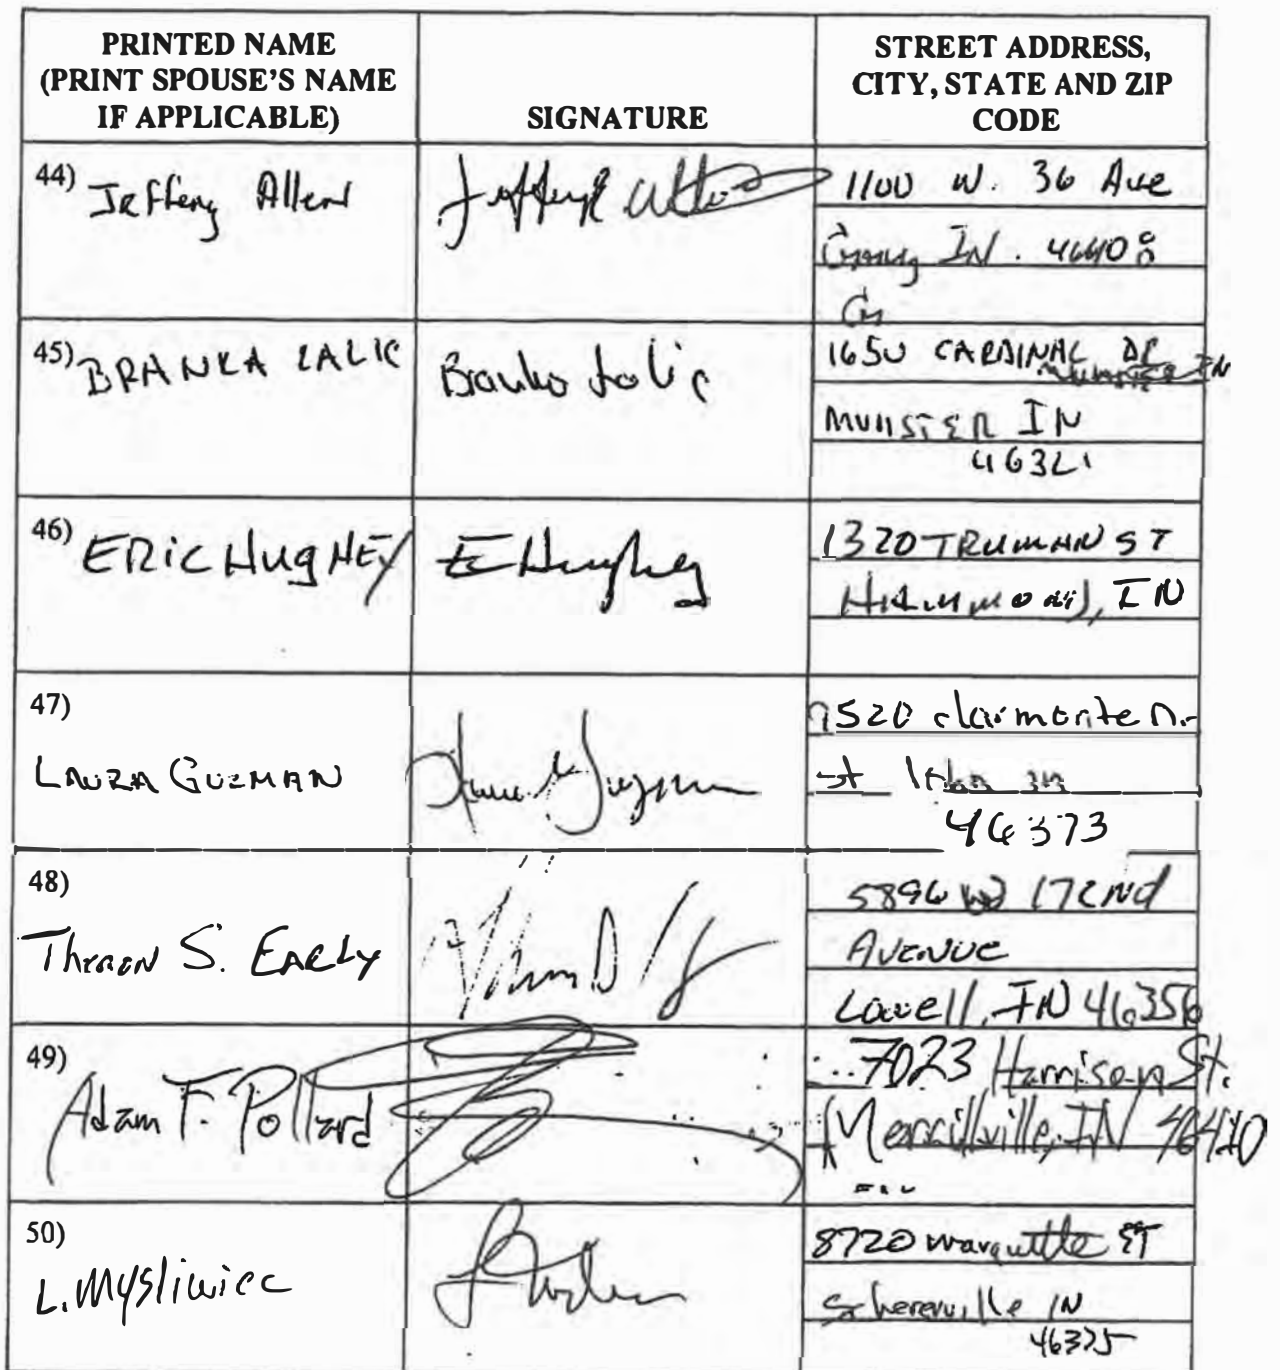 PRINTED NAME
(PRINT SPOUSE'S NAME
IF APPLICABLE)
SIGNATURE
STREET ADDRESS,
CITY, STATE AND ZIP
CODE
44) Jeffery Allen
1100 W. 36 Ave
Gary IN. 46408
45) BRANKA LALIC
Branko Lalic
1650 CARDINAL DR
MUNSTER IN
46321
46) ERIC HUgHEY
E Hughey
1320 TRUMAN ST
Hammond, IN
47)
LAURA GUZMAN
9520 clarmonte Dr
st John in
46373
48)
Theron S. EARLY
5896 W 172Nd
AVENUE
Lowell, IN 46356
49)
Adam F. Pollard
7023 Harrison St.
Merrillville, IN 46410
50)
L. Mysliwiec
8720 marquette ST
Schererville IN
46375